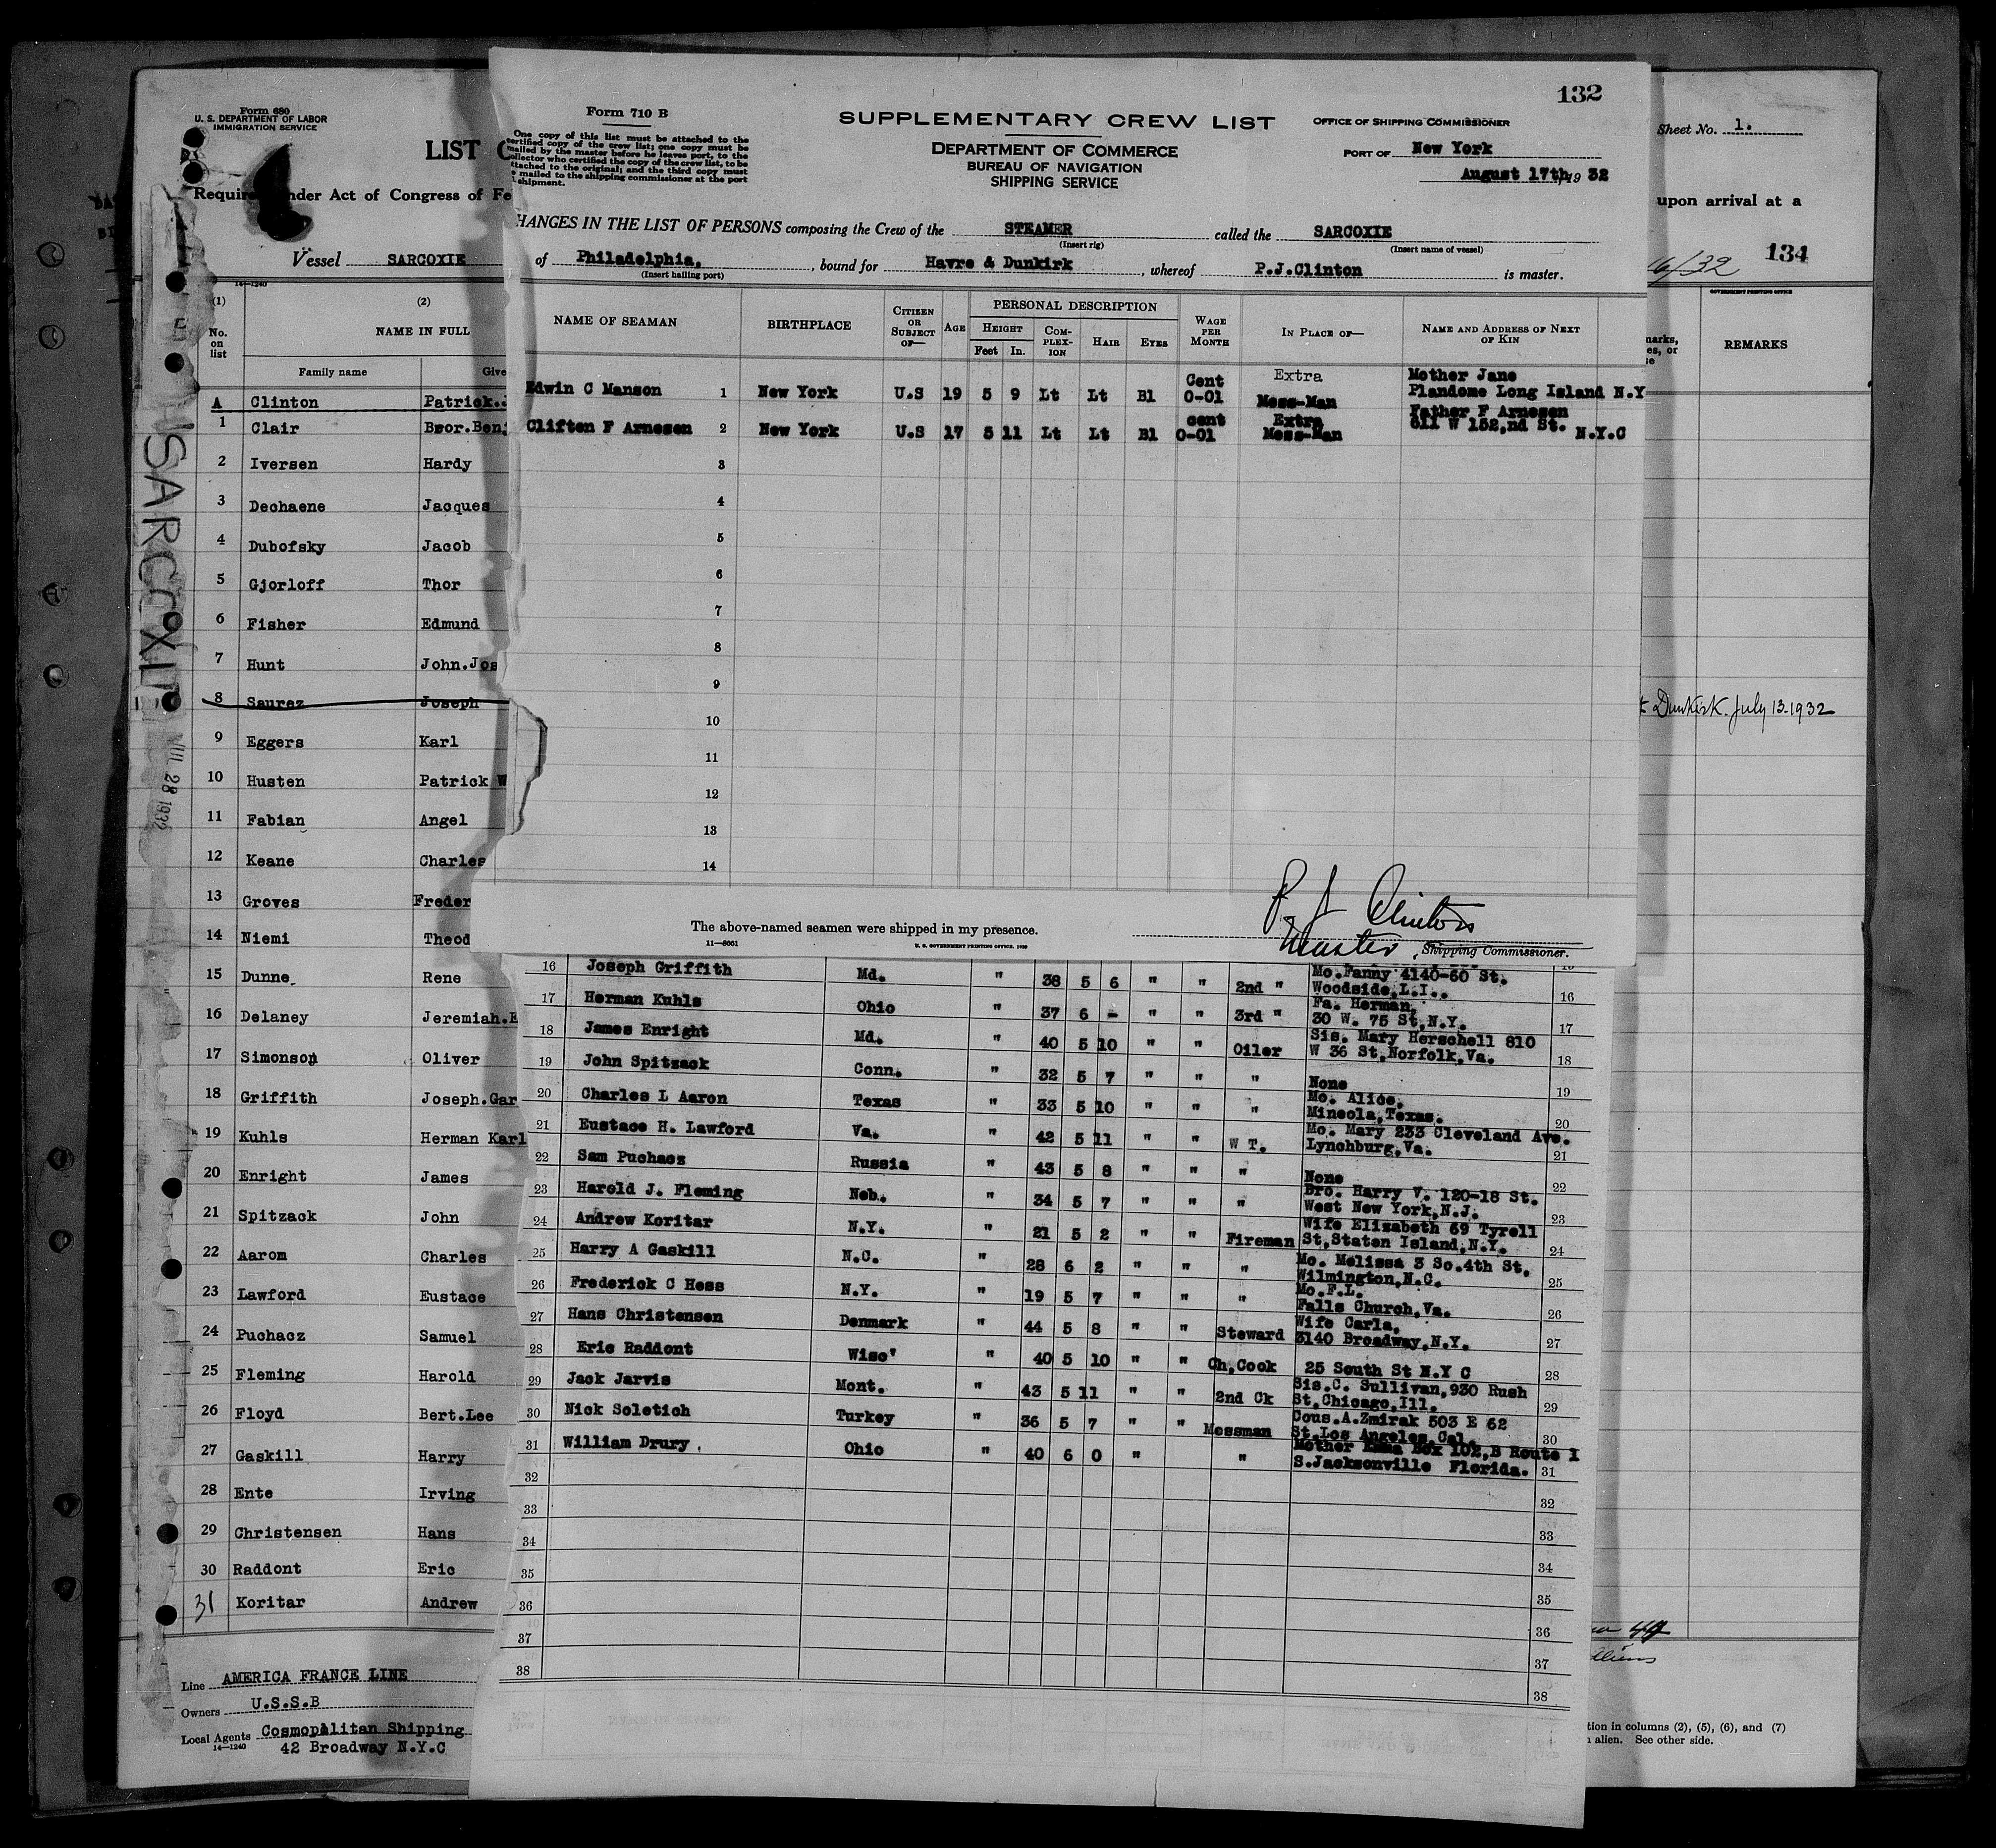 132
Form 710 B
One copy of this list must be attached to the
certified copy of the crew list; one copy must be
mailed by the master before he leaves port, to the
collector who certified the copy of the crew list, to be
attached to the original; and the third copy must
mailed to the shipping commissioner at the port
shipment.
SUPPLEMENTARY CREW LIST
DEPARTMENT OF COMMERCE
BUREAU OF NAVIGATION
SHIPPING SERVICE
OFFICE OF SHIPPING COMMISSIONER
PORT OF New York
August 17th, 19 32
HANGES IN THE LIST OF PERSONS composing the Crew of the STEAMER called the SARCOXIE
(Insert rig) (Insert name of vessel)
of Philadelphia, , bound for Havre & Dunkirk , whereof P.J.Clinton is master.
(Insert hailing port)
NAME OF SEAMAN BIRTHPLACE CITIZEN OR SUBJECT OF— AGE PERSONAL DESCRIPTION HEIGHT Feet In. COM-PLEX-ION HAIR EYES WAGE PER MONTH IN PLACE OF— NAME AND ADDRESS OF NEXT OF KIN
Edwin C Manson 1 New York U.S 19 5 9 Lt Lt Bl Cent 0-01 Extra Mess-Man Mother Jane Plandome Long Island N.Y
Cliften F Arnesen 2 New York U.S 17 5 11 Lt Lt Bl cent 0-01 Extra Mess-Man Father F Arnesen 611 W 152,nd St. N.Y.C
3
4
5
6
7
8
9
10
11
12
13
14
The above-named seamen were shipped in my presence.
P J Clinton
Master, Shipping Commissioner.
11—5051 U. S. GOVERNMENT PRINTING OFFICE: 1930
16 Joseph Griffith Md. " 38 5 6 " " 2nd " Mo.Fanny 4140-60 St. Woodside,L.I.. 16
17 Herman Kuhls Ohio " 37 6 - " " 3rd " Fa. Herman, 30 W. 75 St,N.Y. 17
18 James Enright Md. " 40 5 10 " " Oiler Sis. Mary Herschell 810 W 36 St,Norfolk,Va. 18
19 John Spitzack Conn. " 32 5 7 " " " None 19
20 Charles L Aaron Texas " 33 5 10 " " " Mo. Alice, Mineola,Texas. 20
21 Eustace H. Lawford Va. " 42 5 11 " " W T. Mo. Mary 233 Cleveland Ave. Lynchburg,Va. 21
22 Sam Puchacz Russia " 43 5 8 " " " None 22
23 Harold J. Fleming Neb. " 34 5 7 " " " Bro. Harry V. 120-18 St. West New York,N.J. 23
24 Andrew Koritar N.Y. " 21 5 2 " " Fireman Wife Elizabeth 69 Tyrell St,Staten Island,N.Y. 24
25 Harry A Gaskill N.C. " 28 6 2 " " " Mo. Melissa 3 So.4th St. Wilmington,N.C. 25
26 Frederick C Hess N.Y. " 19 5 7 " " " Mo.F.L. Falls Church,Va. 26
27 Hans Christensen Denmark " 44 5 8 " " Steward Wife Carla, 3140 Broadway,N.Y. 27
28 Eric Raddont Wisc' " 40 5 10 " " Ch,Cook 25 South St N.Y C 28
29 Jack Jarvis Mont. " 43 5 11 " " 2nd Ck Sis.C. Sullivan,930 Rush St,Chicago,Ill. 29
30 Nick Soletich Turkey " 36 5 7 " " Messman Cous.A.Zmirak 503 E 62 St.Los Angeles,Cal. 30
31 William Drury. Ohio " 40 6 0 " " Mother Emma Box 102,B Route 1 S.Jacksonville Florida. 31
32 32
33 33
34 34
35 35
36 36
37 37
38 38
Form 680
U. S. DEPARTMENT OF LABOR
IMMIGRATION SERVICE
LIST
Required under Act of Congress of Fe
Vessel SARCOXIE
14—1240
(1) (2)
No. on list NAME IN FULL
Family name Give
A Clinton Patrick.J
1 Clair Bror.Benj
2 Iversen Hardy
3 Dechaene Jacques
4 Dubofsky Jacob
5 Gjorloff Thor
6 Fisher Edmund
7 Hunt John.Jos
8 Saurez Joseph
9 Eggers Karl
10 Husten Patrick W
11 Fabian Angel
12 Keane Charles
13 Groves Freder
14 Niemi Theod
15 Dunne Rene
16 Delaney Jeremiah.E
17 Simonson Oliver
18 Griffith Joseph.Gar
19 Kuhls Herman Karl
20 Enright James
21 Spitzack John
22 Aarom Charles
23 Lawford Eustace
24 Puchacz Samuel
25 Fleming Harold
26 Floyd Bert.Lee
27 Gaskill Harry
28 Ente Irving
29 Christensen Hans
30 Raddont Eric
31 Koritar Andrew
Line AMERICA FRANCE LINE
Owners U.S.S.B
Local Agents Cosmopolitan Shipping
14—1240 42 Broadway N.Y.C
SARCOXIE
28 1932
Sheet No. 1.
upon arrival at a
16/32 134
GOVERNMENT PRINTING OFFICE
REMARKS
Dunkirk. July 13-1932
tion in columns (2), (5), (6), and (7)
alien. See other side.